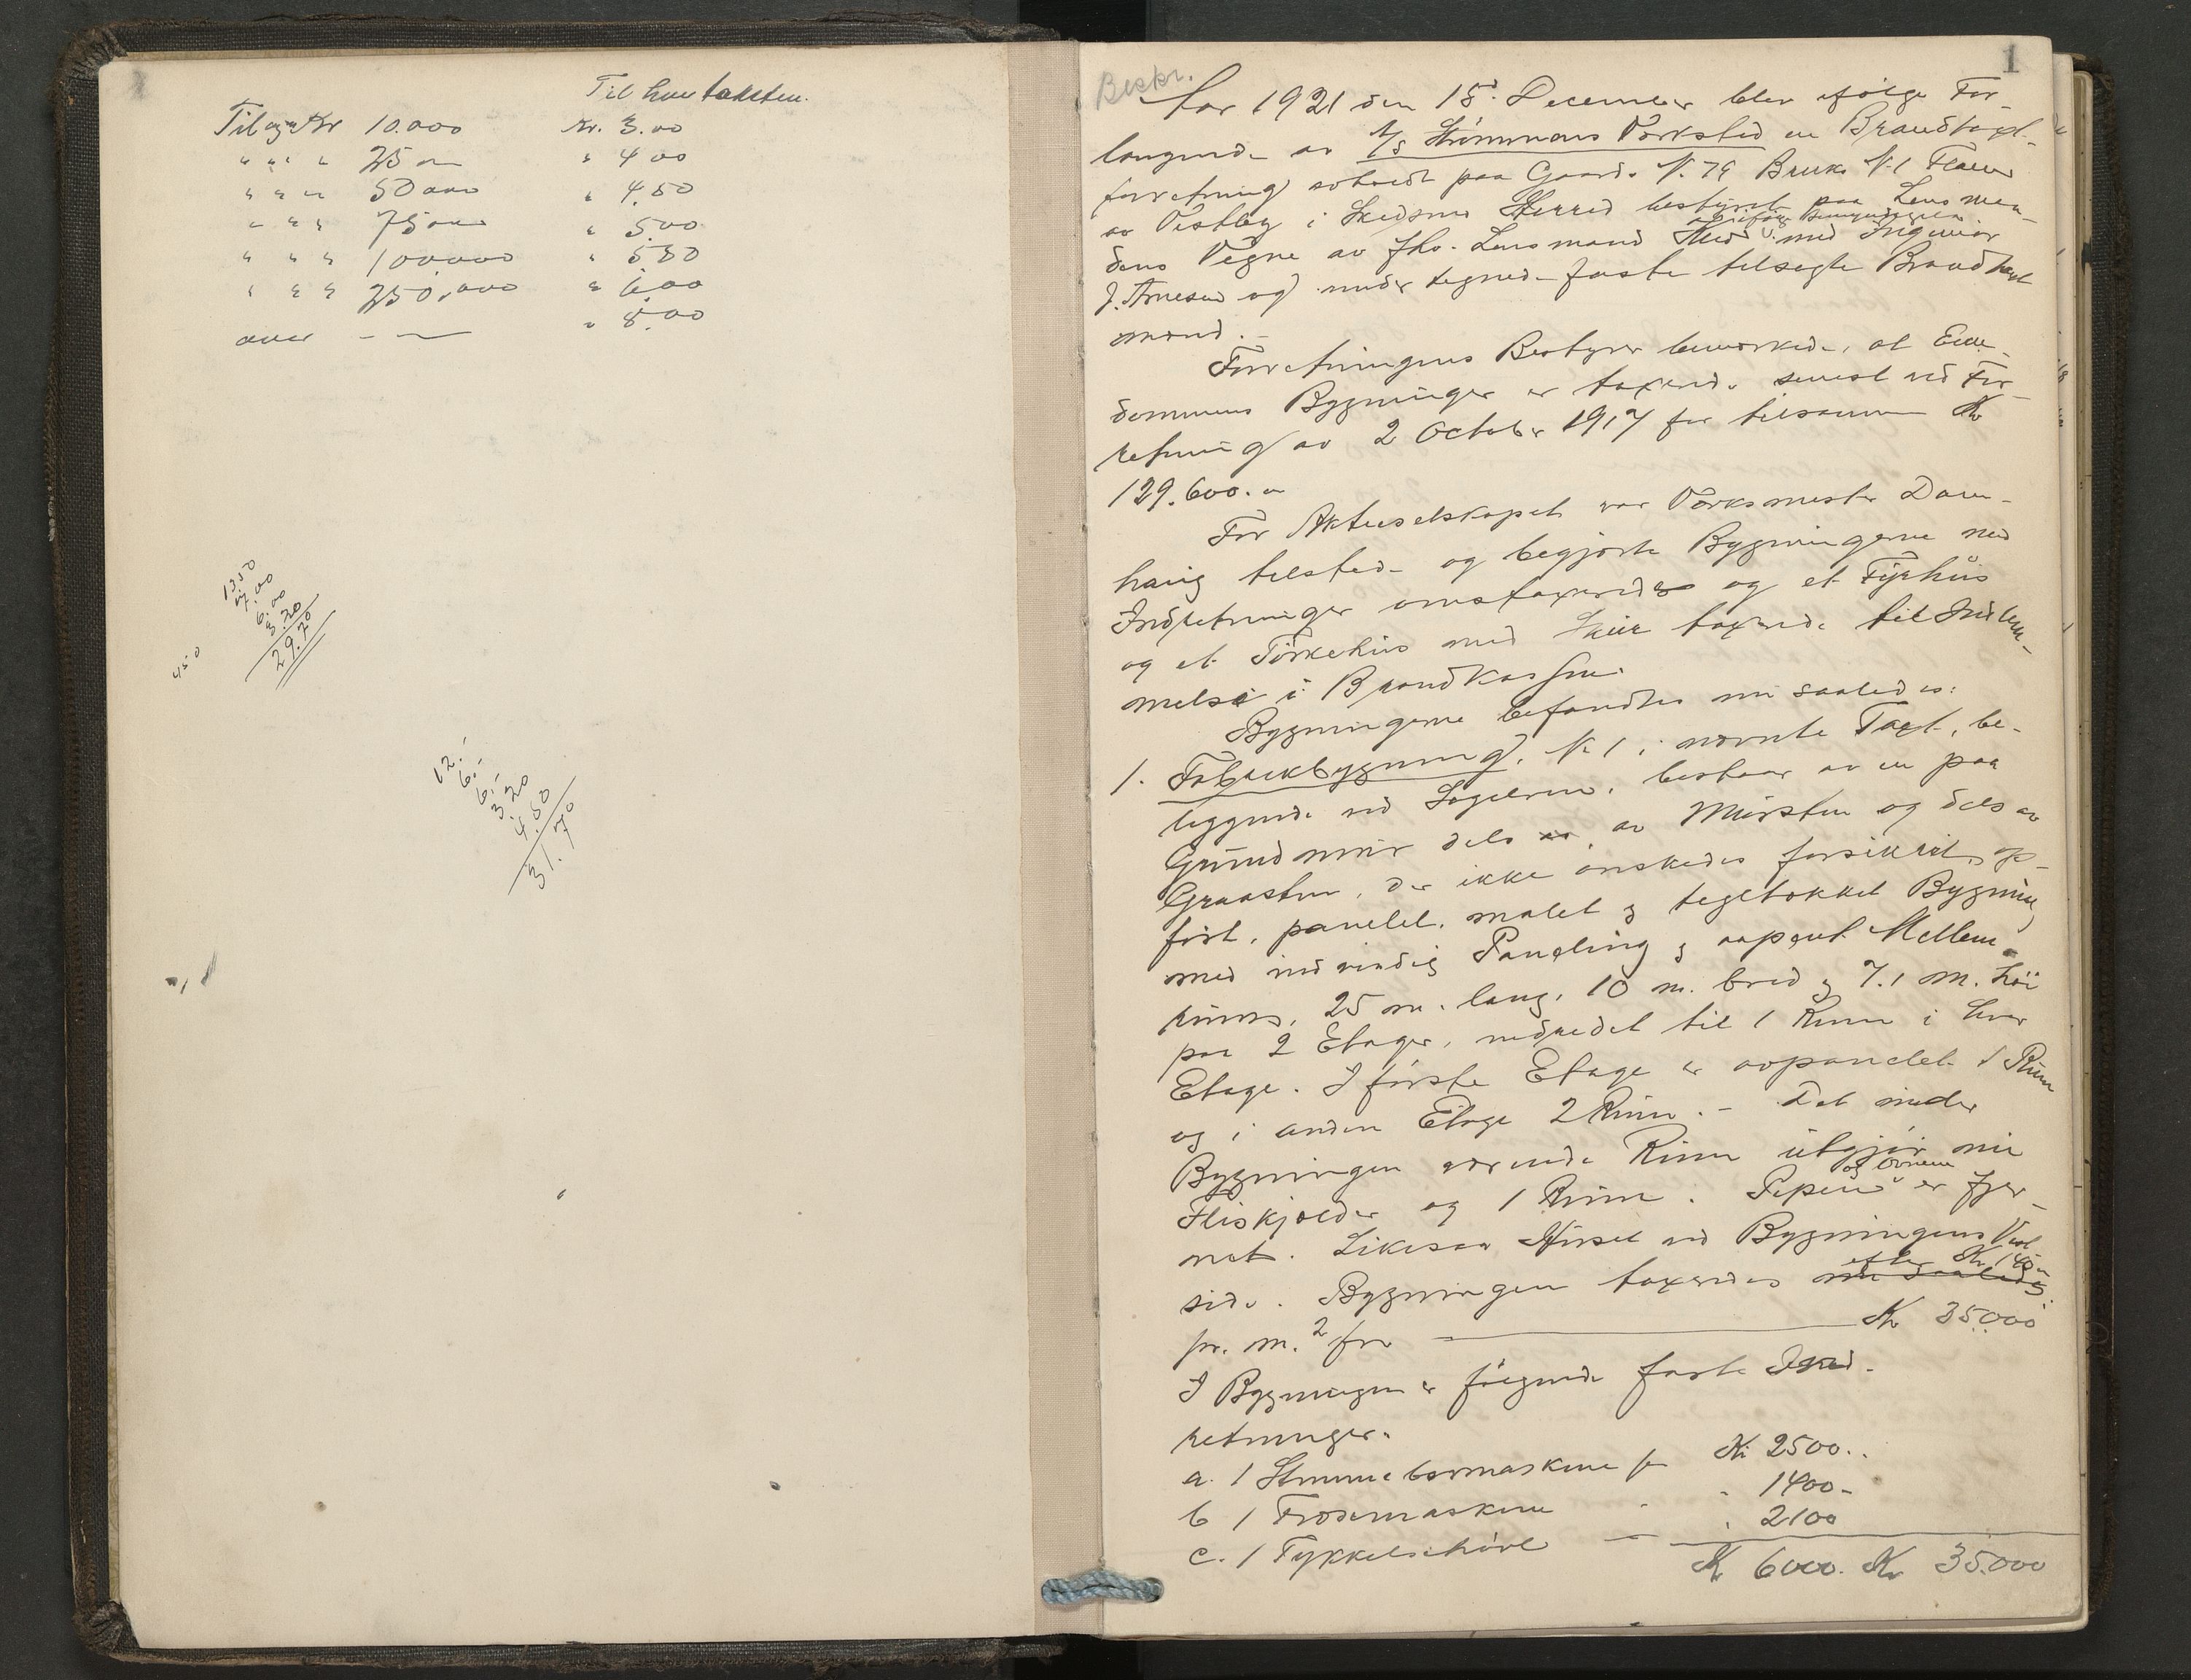 Til hver taksten.
Til og m Kr 10.000 Kr. 3.00
" " " " 25 000 " 4 00
" " " 50 000 " 4.50
" " " 75 000 " 5.00
" " " 100,000 " 5 50
" " " 250,000 " 6.00
over - — " 8.00
13.50
7.00
6.00
3.20
29.70
450
12.-
6.-
6.-
3.20
4.50
31.70
1
Beskr.
Aar 1921 den 15. December blev ifølge For-
langende av A/s Strømmens Værksted en Brandtaxt-
forretning avholdt paa Gaards N. 79 Bruks N. 1
av Vestby i Skedsmo Herred bestyret paa Lensman-
ifølge Bemyndigelse
dens Vegne av fhv. Lensmand med Ingeniør
J. Arnesen og undertegnede faste tilsagte Brandtaxt
mænd.-
Forretningens Bestyrer bemærkede, at Eien-
dommens Bygninger er taxerede senest ved For-
retning av 2 October 1917 for tilsammen Kr
129.600.00
For Aktieselskapet var Værksmester Dam-
haug tilstede og begjærte Bygningerne med
Indretninger omtaxeredes og et Fyrhus
og et Tørkehus med Skur taxerede til Indlem-
melse i Brandkassen.
Bygningerne befandtes nu saaledes:
1. Fabrikbygning, N. 1 i nævnte Taxt, be-
liggende ved Sagelven, bestaar av en paa
Grundmur dels av Mursten og dels av
Graasten, der ikke ønskedes forsikret, op-
ført, panelet, malet og tegltækket Bygning
med indvendig Paneling og aapent Mellem-
rum, 25 m. lang, 10 m. bred og 7.1 m. høi
paa 2 Etager, indredet til 1 Rum i hver
Etage. I første Etage er avpanelet 1 Rum
og i anden Etage 2 Rum.- Det under
Bygningen værende Rum utgjør nu
Fliskjælder og 1 Rum. Pipen og Ovnene er fjer-
net. Likesaa Skuret ved Bygningens Vest-
side. Bygningen taxeredes nu saaledes efter Kr. 140.00
pr. m.² for — Kr 35.000
I Bygningen er følgende faste Ind-
retninger.
a. 1 Stemmebormaskine for Kr 2500..
b 1 Fræsemaskine - " 1400-
c. 1 Tykkelseshøvl — " 2100
Kr 6000. Kr 35.000